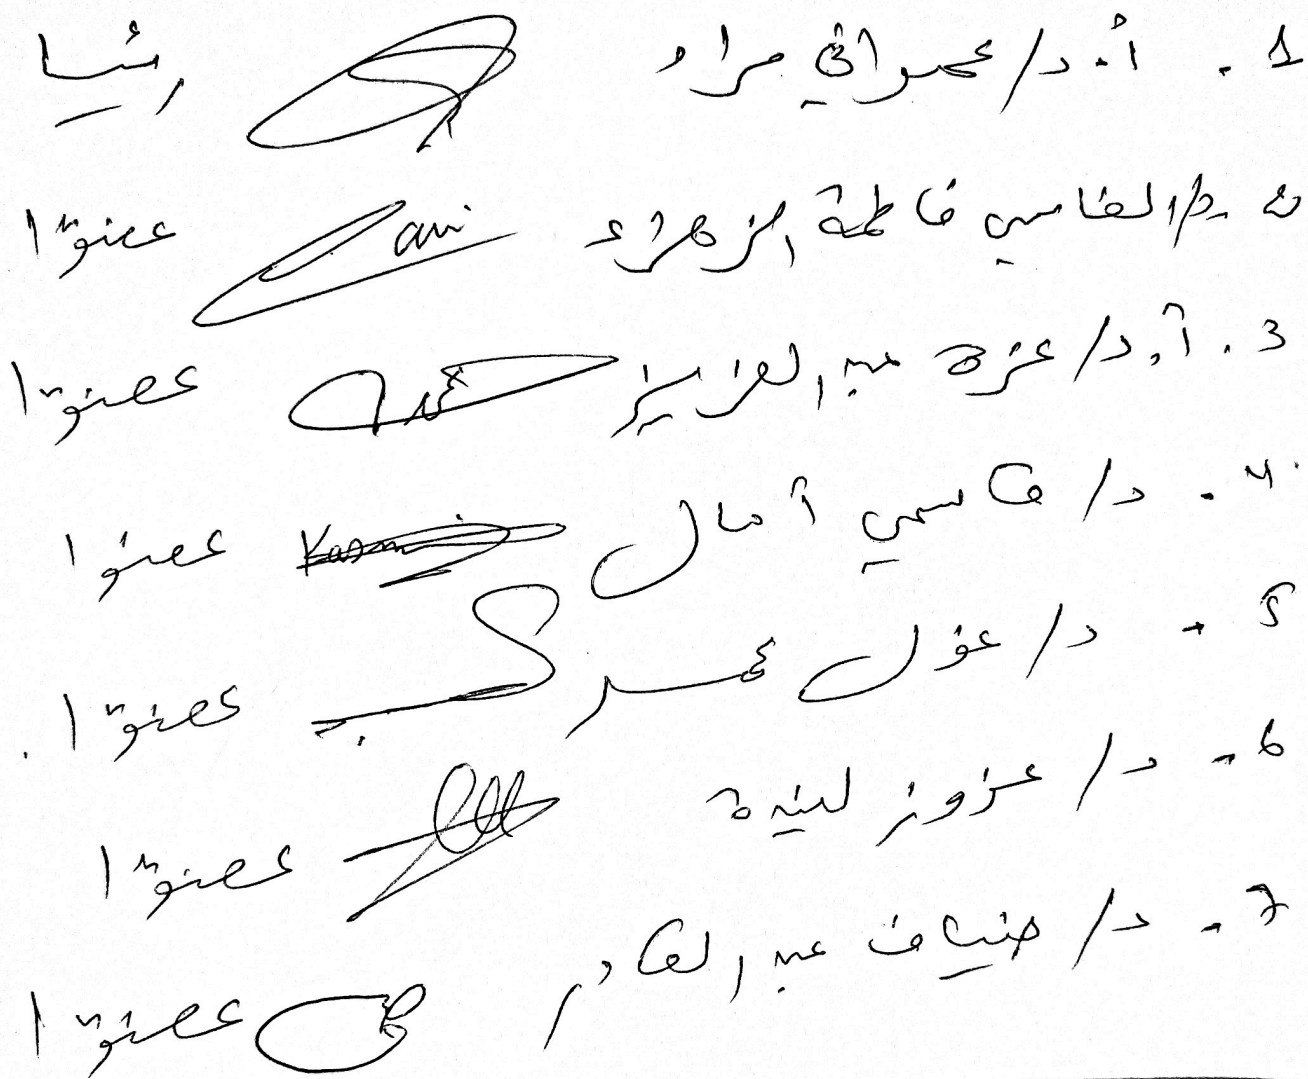 1. أ. د/ عمراني مراد رئيسا
2. د/ القاسي فاطمة الزهراء عضوًا
3. أ. د/ عزة عبد العزيز عضوًا
4. د/ قاسمي آمال Kasmi عضوا
5. د/ غول عضوًا
6. د/ عزوز لبنة عضوًا
7. د/ ضياف عبد القادر عضوًا